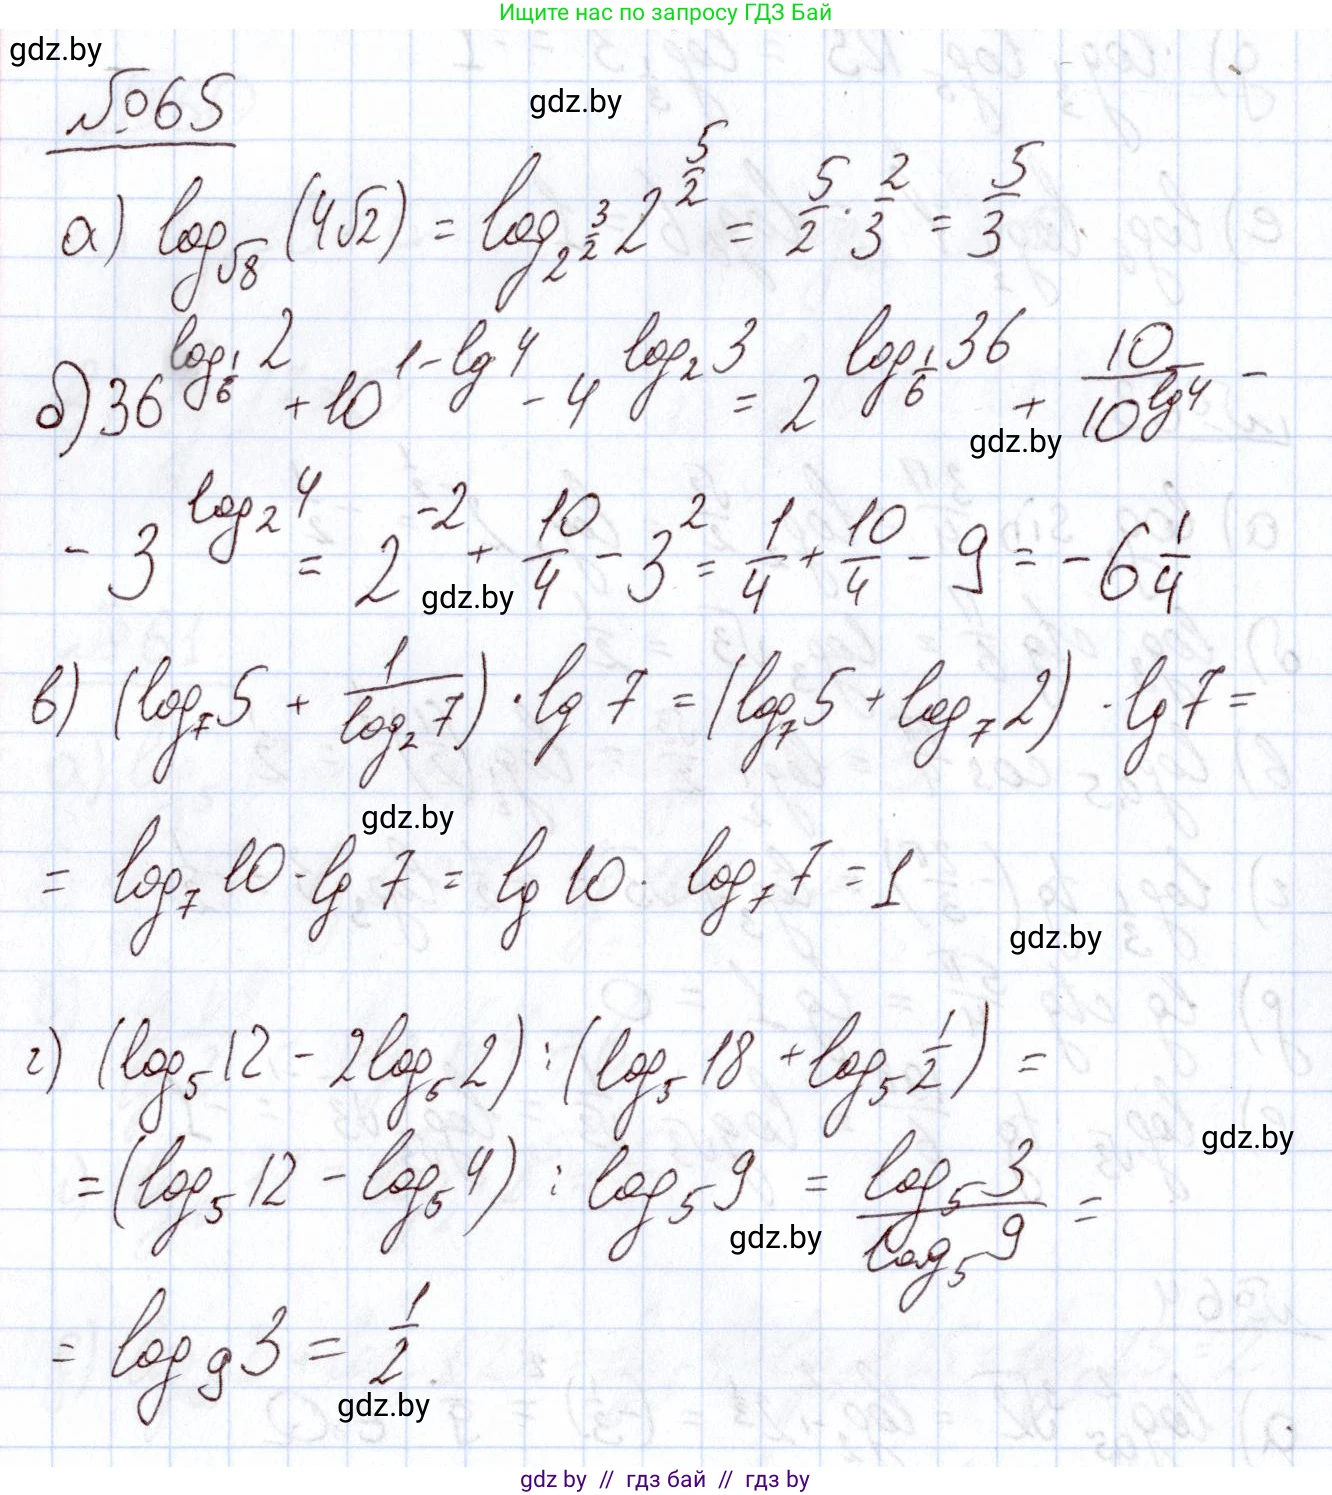 Ищите нас по запросу ГДЗ Бай
gdz.by
№65
gdz.by
а) log_{√8} (4√2) = log_{2^{3/2}} 2^{5/2} = 5/2 · 2/3 = 5/3
б) 36^{log_{1/6} 2} + 10^{1-lg 4} - 4^{log_2 3} = 2^{log_{1/6} 36} + 10/10^{lg 4} -
gdz.by
- 3^{log_2 4} = 2^{-2} + 10/4 - 3^2 = 1/4 + 10/4 - 9 = -6 1/4
gdz.by
в) (log_7 5 + 1/log_2 7) · lg 7 = (log_7 5 + log_7 2) · lg 7 =
gdz.by
= log_7 10 · lg 7 = lg 10 · log_7 7 = 1
gdz.by
г) (log_5 12 - 2log_5 2) : (log_5 18 + log_5 1/2) =
gdz.by
= (log_5 12 - log_5 4) : log_5 9 = log_5 3 / log_5 9 =
gdz.by
= log_9 3 = 1/2
gdz.by
gdz by // гдз бай // гдз by